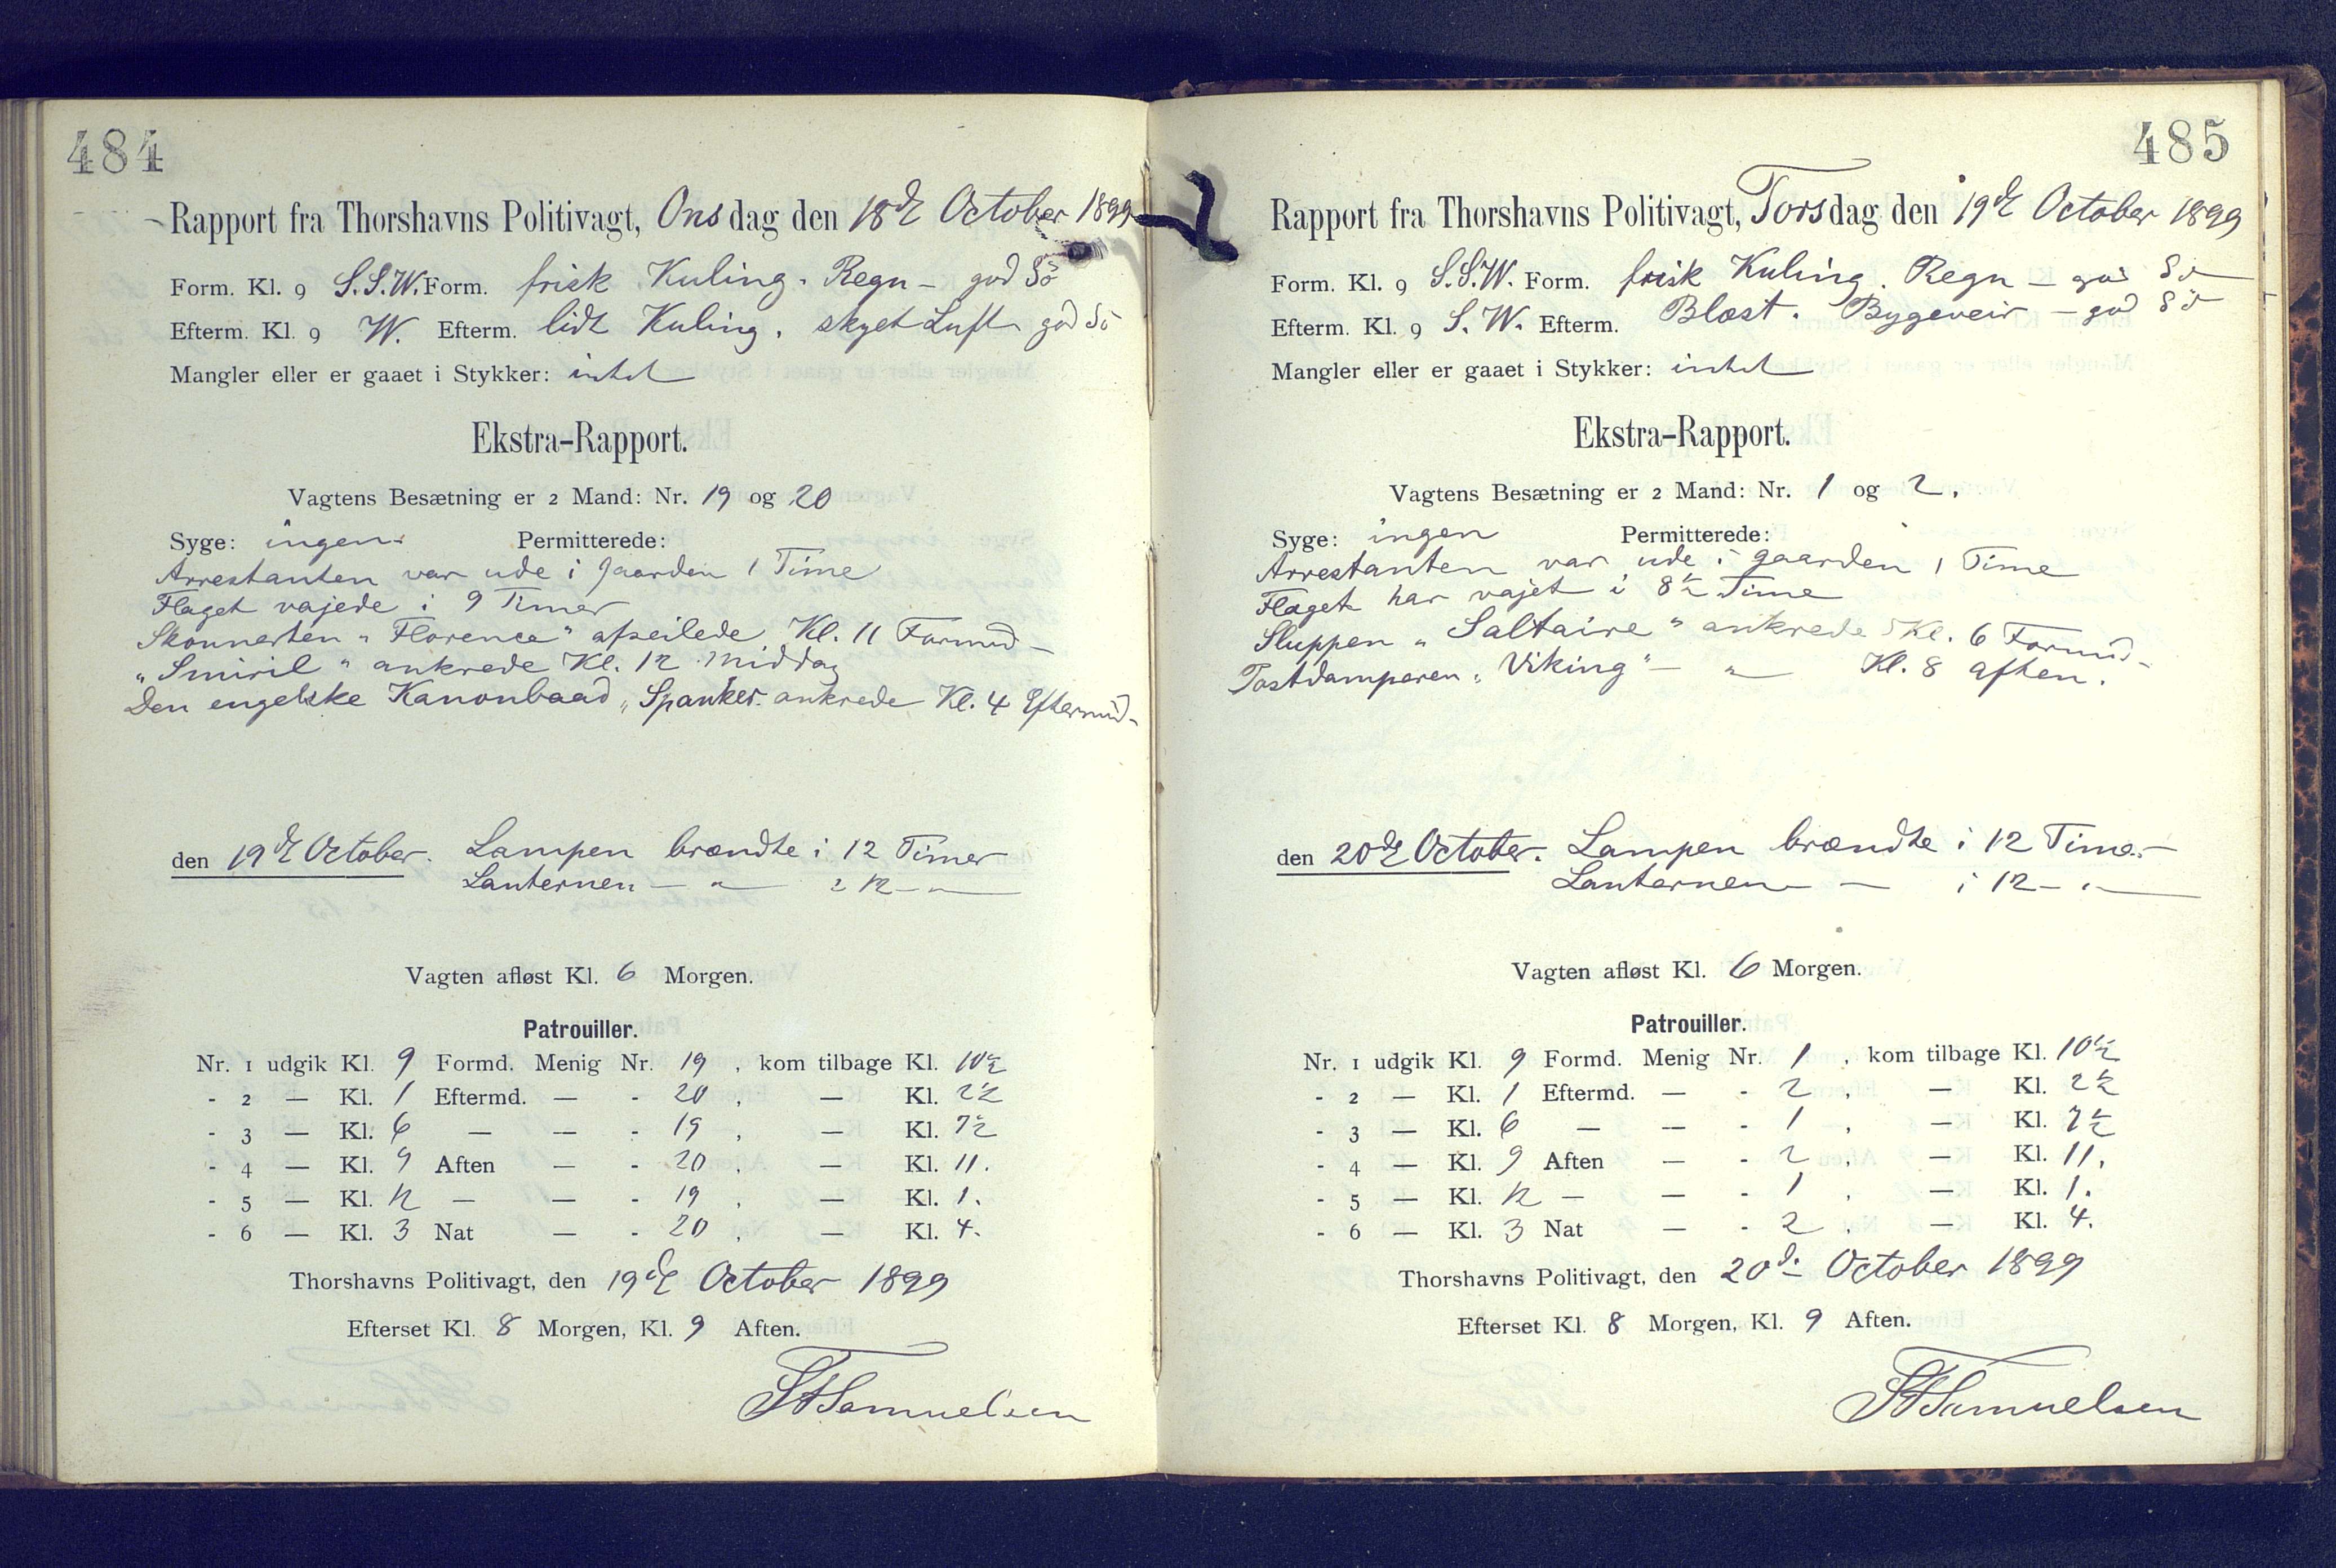 484
Rapport fra Thorshavns Politivagt, Onsdag den 18de October 1899
Form. Kl. 9 S.S.W. Form. frisk Kuling. Regn - god Sö
Efterm. Kl. 9 W. Efterm. lidt Kuling. skyet Luft god Sö
Mangler eller er gaaet i Stykker: intet
Ekstra-Rapport.
Vagtens Besætning er 2 Mand: Nr. 19 og 20
Syge: ingen. Permitterede:
Arrestanten var ude i gaarden 1 Time
Flaget vajede i 9 Timer
Skonnerten "Florence" afseilede Kl. 11 Formd -
"Smiril" ankrede Kl. 12 Middag
Den engelske Kanonbaad "Spanker" ankrede Kl. 4 Eftermd -
den 19de October. Lampen brændte i 12 Timer
Lanternen - " - i 12 - " -
Vagten afløst Kl. 6 Morgen.
Patrouiller.
Nr. 1 udgik Kl. 9 Formd. Menig Nr. 19, kom tilbage Kl. 10½
- 2 — Kl. 1 Eftermd. — - 20, — Kl. 2½
- 3 — Kl. 6 — — - 19, — Kl. 7½
- 4 — Kl. 9 Aften — - 20, — Kl. 11.
- 5 — Kl. 12 — — - 19, — Kl. 1.
- 6 — Kl. 3 Nat — - 20, — Kl. 4.
Thorshavns Politivagt, den 19de October 1899
Efterset Kl. 8 Morgen, Kl. 9 Aften.
Samuelsen
485
Rapport fra Thorshavns Politivagt, Torsdag den 19de October 1899
Form. Kl. 9 S.S.W. Form. frisk Kuling. Regn - god Sö
Efterm. Kl. 9 S.W. Efterm. Blæst. Bygeveir - god Sö
Mangler eller er gaaet i Stykker: intet
Ekstra-Rapport.
Vagtens Besætning er 2 Mand: Nr. 1 og 2.
Syge: ingen Permitterede:
Arrestanten var ude i gaarden 1 Time
Flaget har vajet i 8½ Time
Sluppen "Saltaire" ankrede Kl. 6 Formd -
Postdamperen "Viking" - " - Kl. 8 aften.
den 20de October. Lampen brændte i 12 Timer -
Lanternen - - i 12 - " -
Vagten afløst Kl. 6 Morgen.
Patrouiller.
Nr. 1 udgik Kl. 9 Formd. Menig Nr. 1, kom tilbage Kl. 10½
- 2 — Kl. 1 Eftermd. — - 2, — Kl. 2½
- 3 — Kl. 6 — — - 1, — Kl. 7½
- 4 — Kl. 9 Aften — - 2, — Kl. 11.
- 5 — Kl. 12 — — - 1, — Kl. 1.
- 6 — Kl. 3 Nat — - 2, — Kl. 4.
Thorshavns Politivagt, den 20de October 1899
Efterset Kl. 8 Morgen, Kl. 9 Aften.
Samuelsen